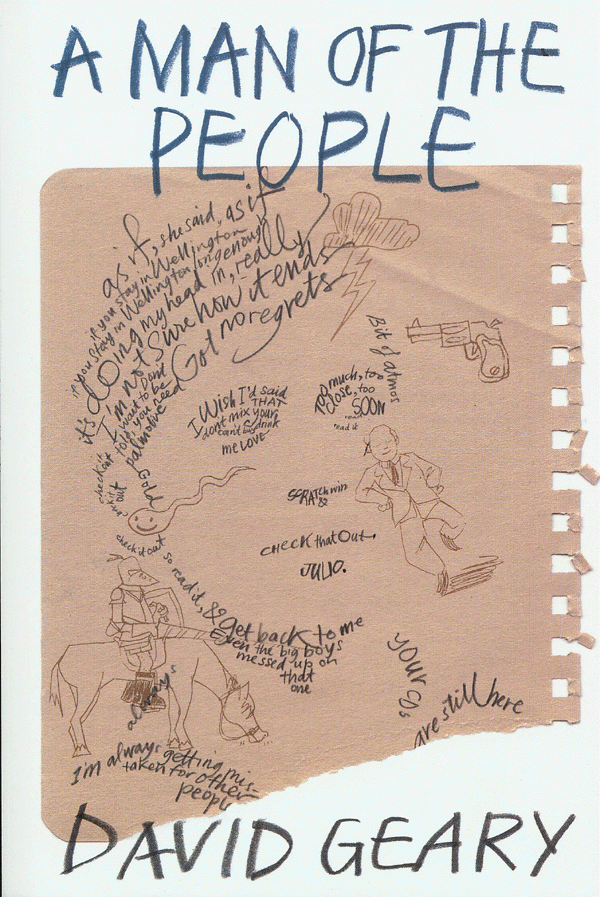 A MAN OF THE
PEOPLE
as if, she said, as if
if you stay in Wellington
if you stay in Wellington long enough
it's doing my head in, really
I'm not sure how it ends
Got no regrets
Dont
want to be
told you need
palmolive
Gold
check it out
check it out
check it out
I Wish I'd said
THAT
dont mix your
drink
me love
Bit of atmos
TOO much, too
close, too
SOON
read it
SCRATCH win
&
check that out,
JULIO.
so read it, & get back to me
Even the big boys
messed up on
that
one
always
I'm always getting mis-
taken for other
people
your CDs
are still here
DAVID GEARY